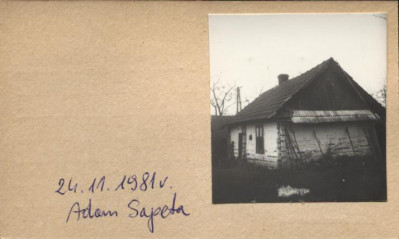 24.11.1981r.
Adam Sapeta